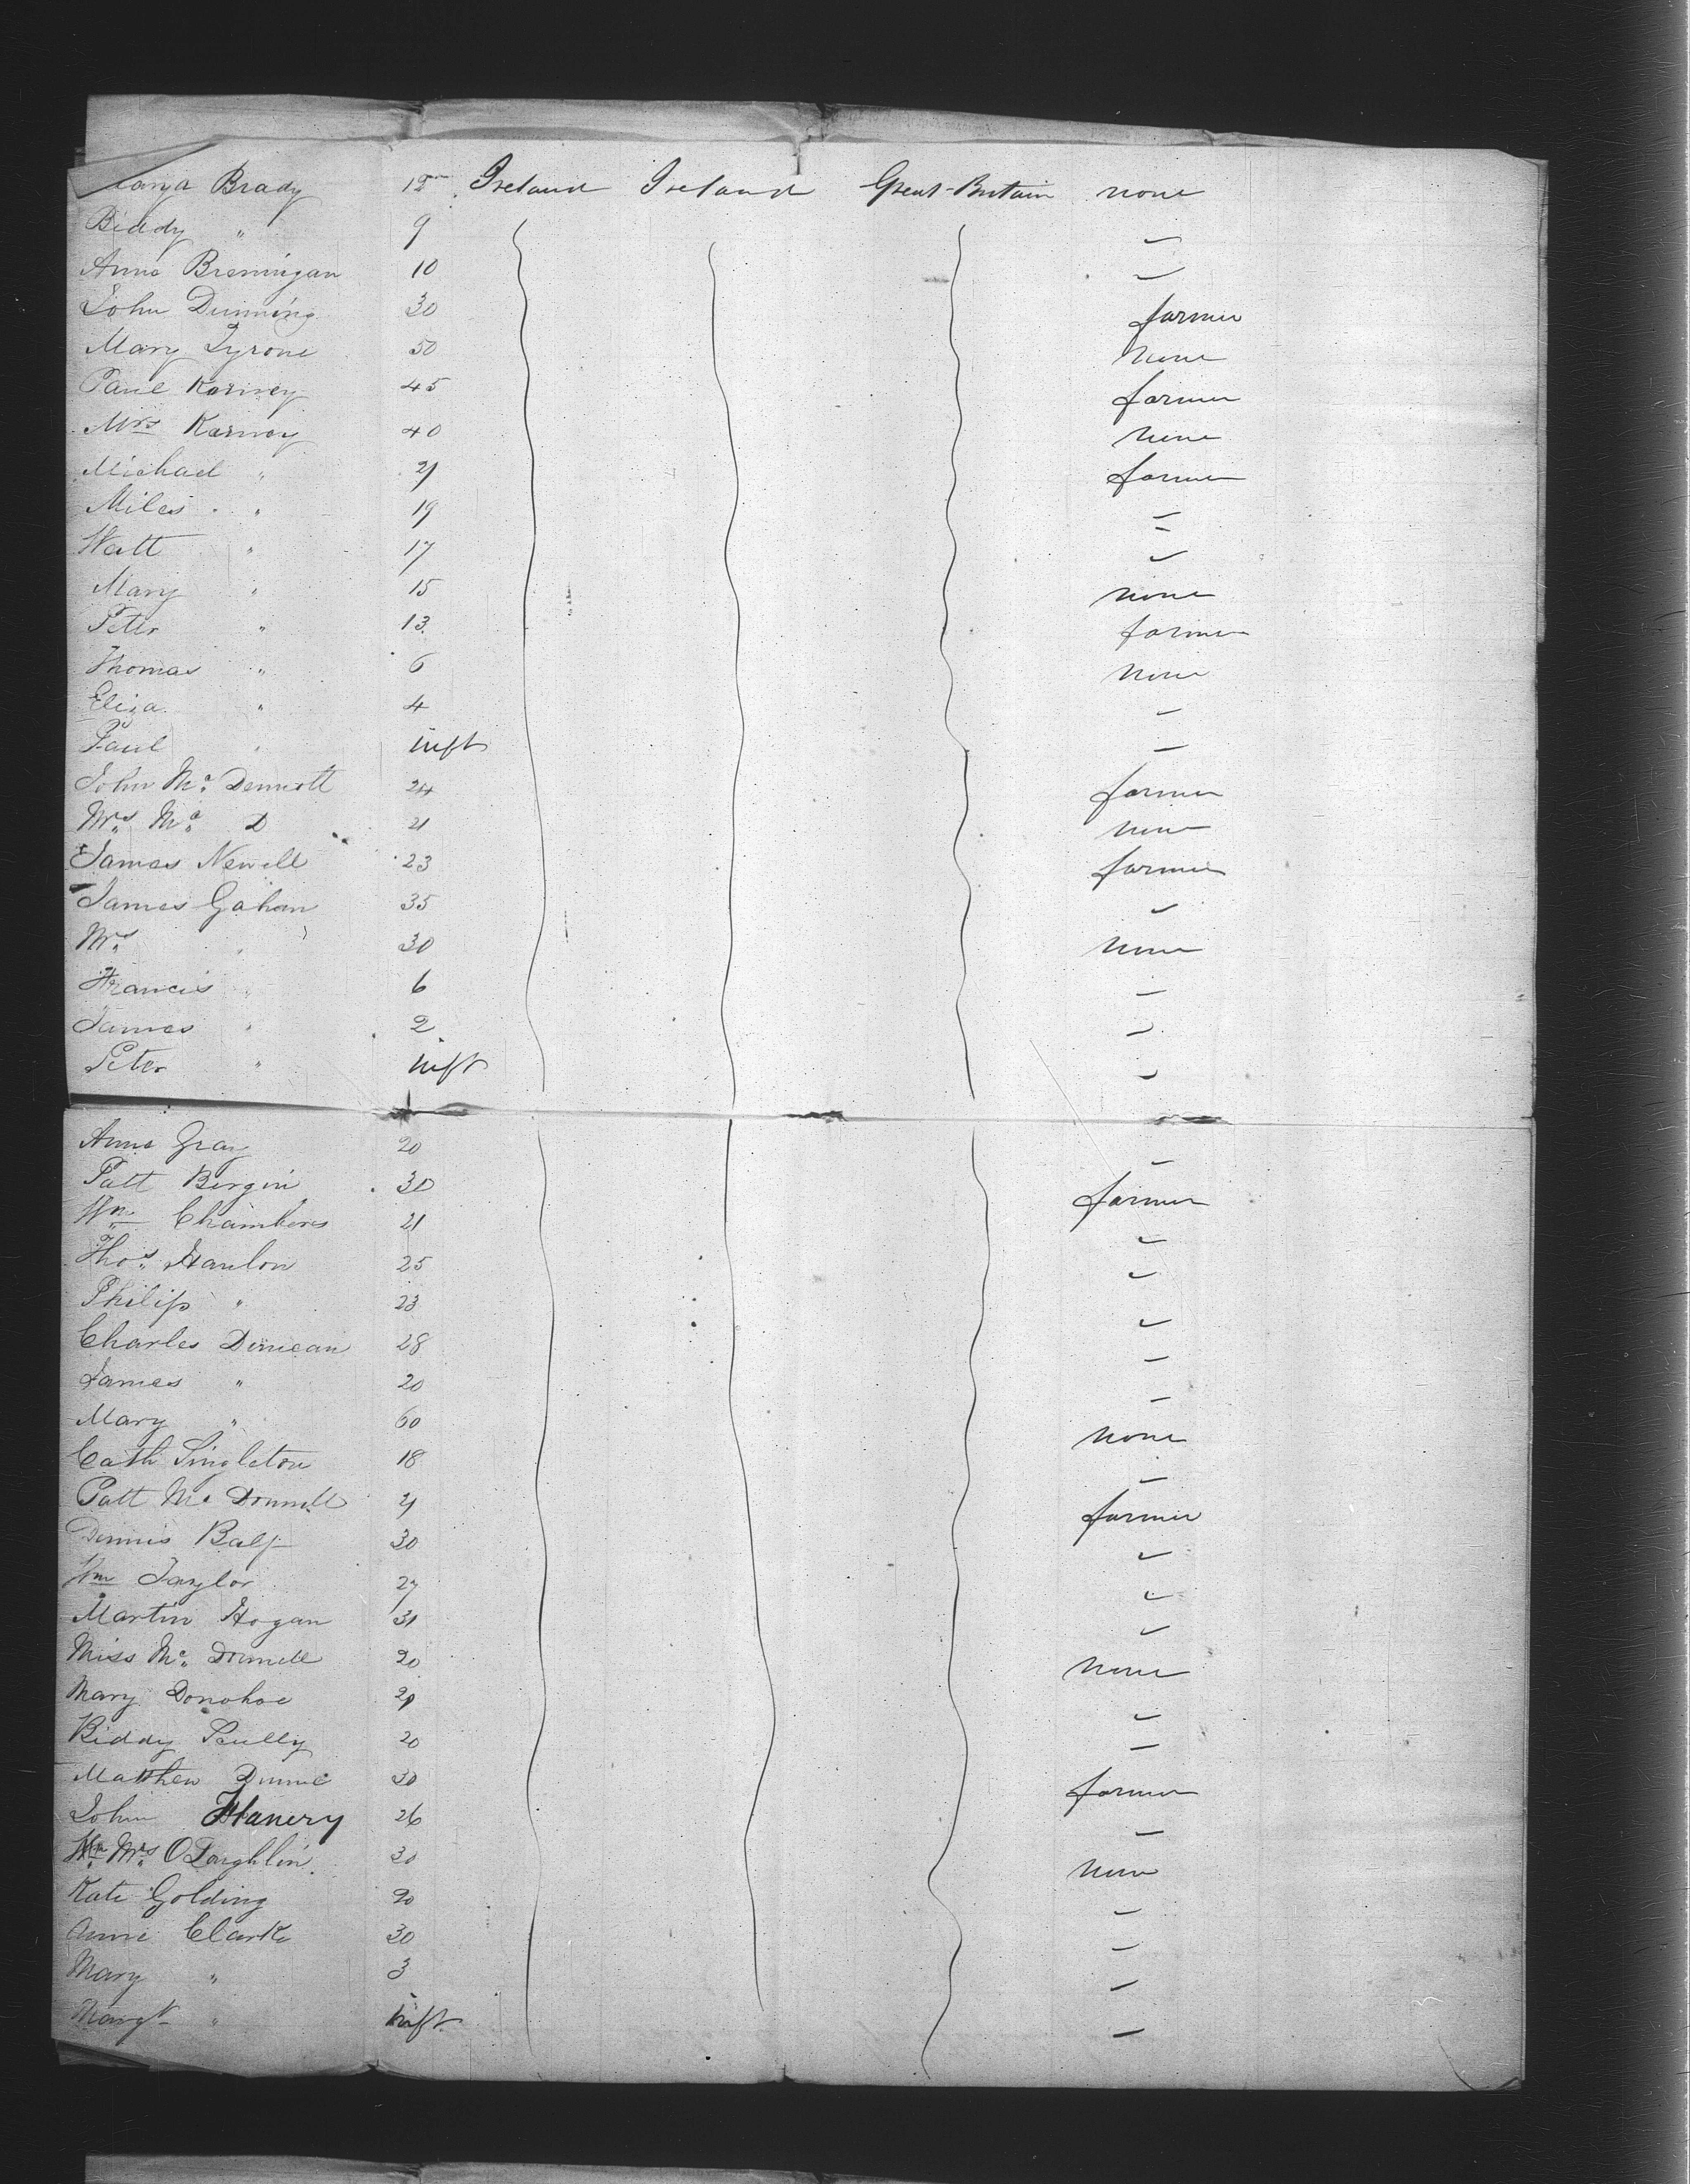 Brady 12 Ireland Ireland Great-Britain none
Biddy " 9 –
Anne Brennigan 10 –
John Dunning 30 farmer
Mary Tyrone 50 none
Paul Karney 45 farmer
Mrs Karney 40 none
Michael " 21 farmer
Miles " 19 –
Watt " 17 –
Mary " 15 none
Peter " 13 farmer
Thomas " 6 none
Eliza " 4 –
Paul " inft –
John Mc Dermott 24 farmer
Mrs Mc D 21 none
James Newell 23 farmer
James Gahan 35 –
Mrs " 30 none
Francis " 6 –
James " 2 –
Peter " inft –
Anne Gray 20 –
Patt Bergin 30 farmer
Wm Chambers 21 –
Thos Hanlon 25 –
Philip " 23 –
Charles Duncan 28 –
James " 20 –
Mary " 60 none
Cath Singleton 18 –
Patt Mc Donnell 21 farmer
Dennis Balf 30 –
Wm Taylor 27 –
Martin Hogan 31 –
Miss Mc Donnell 20 none
Mary Donohoe 21 –
Biddy Scully 20 –
Matthew Dunne 30 farmer
John 26 –
Mrs O'Loughlin 30 none
Kate Golding 20 –
Anne Clarke 30 –
Mary " 3 –
Margt " inft –